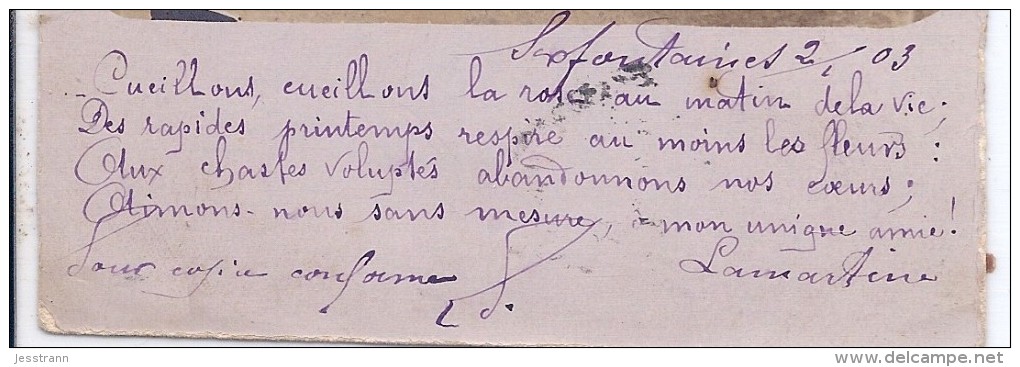 Sexfontaines 2/03
Cueillons, cueillons la rose au matin de la vie;
Des rapides printemps respire au moins les fleurs:
Aux chastes voluptés abandonnons nos cœurs;
Aimons-nous sans mesure, mon unique amie!
Pour copie conforme Lamartine
L d.
jesstrann
delcampe.net